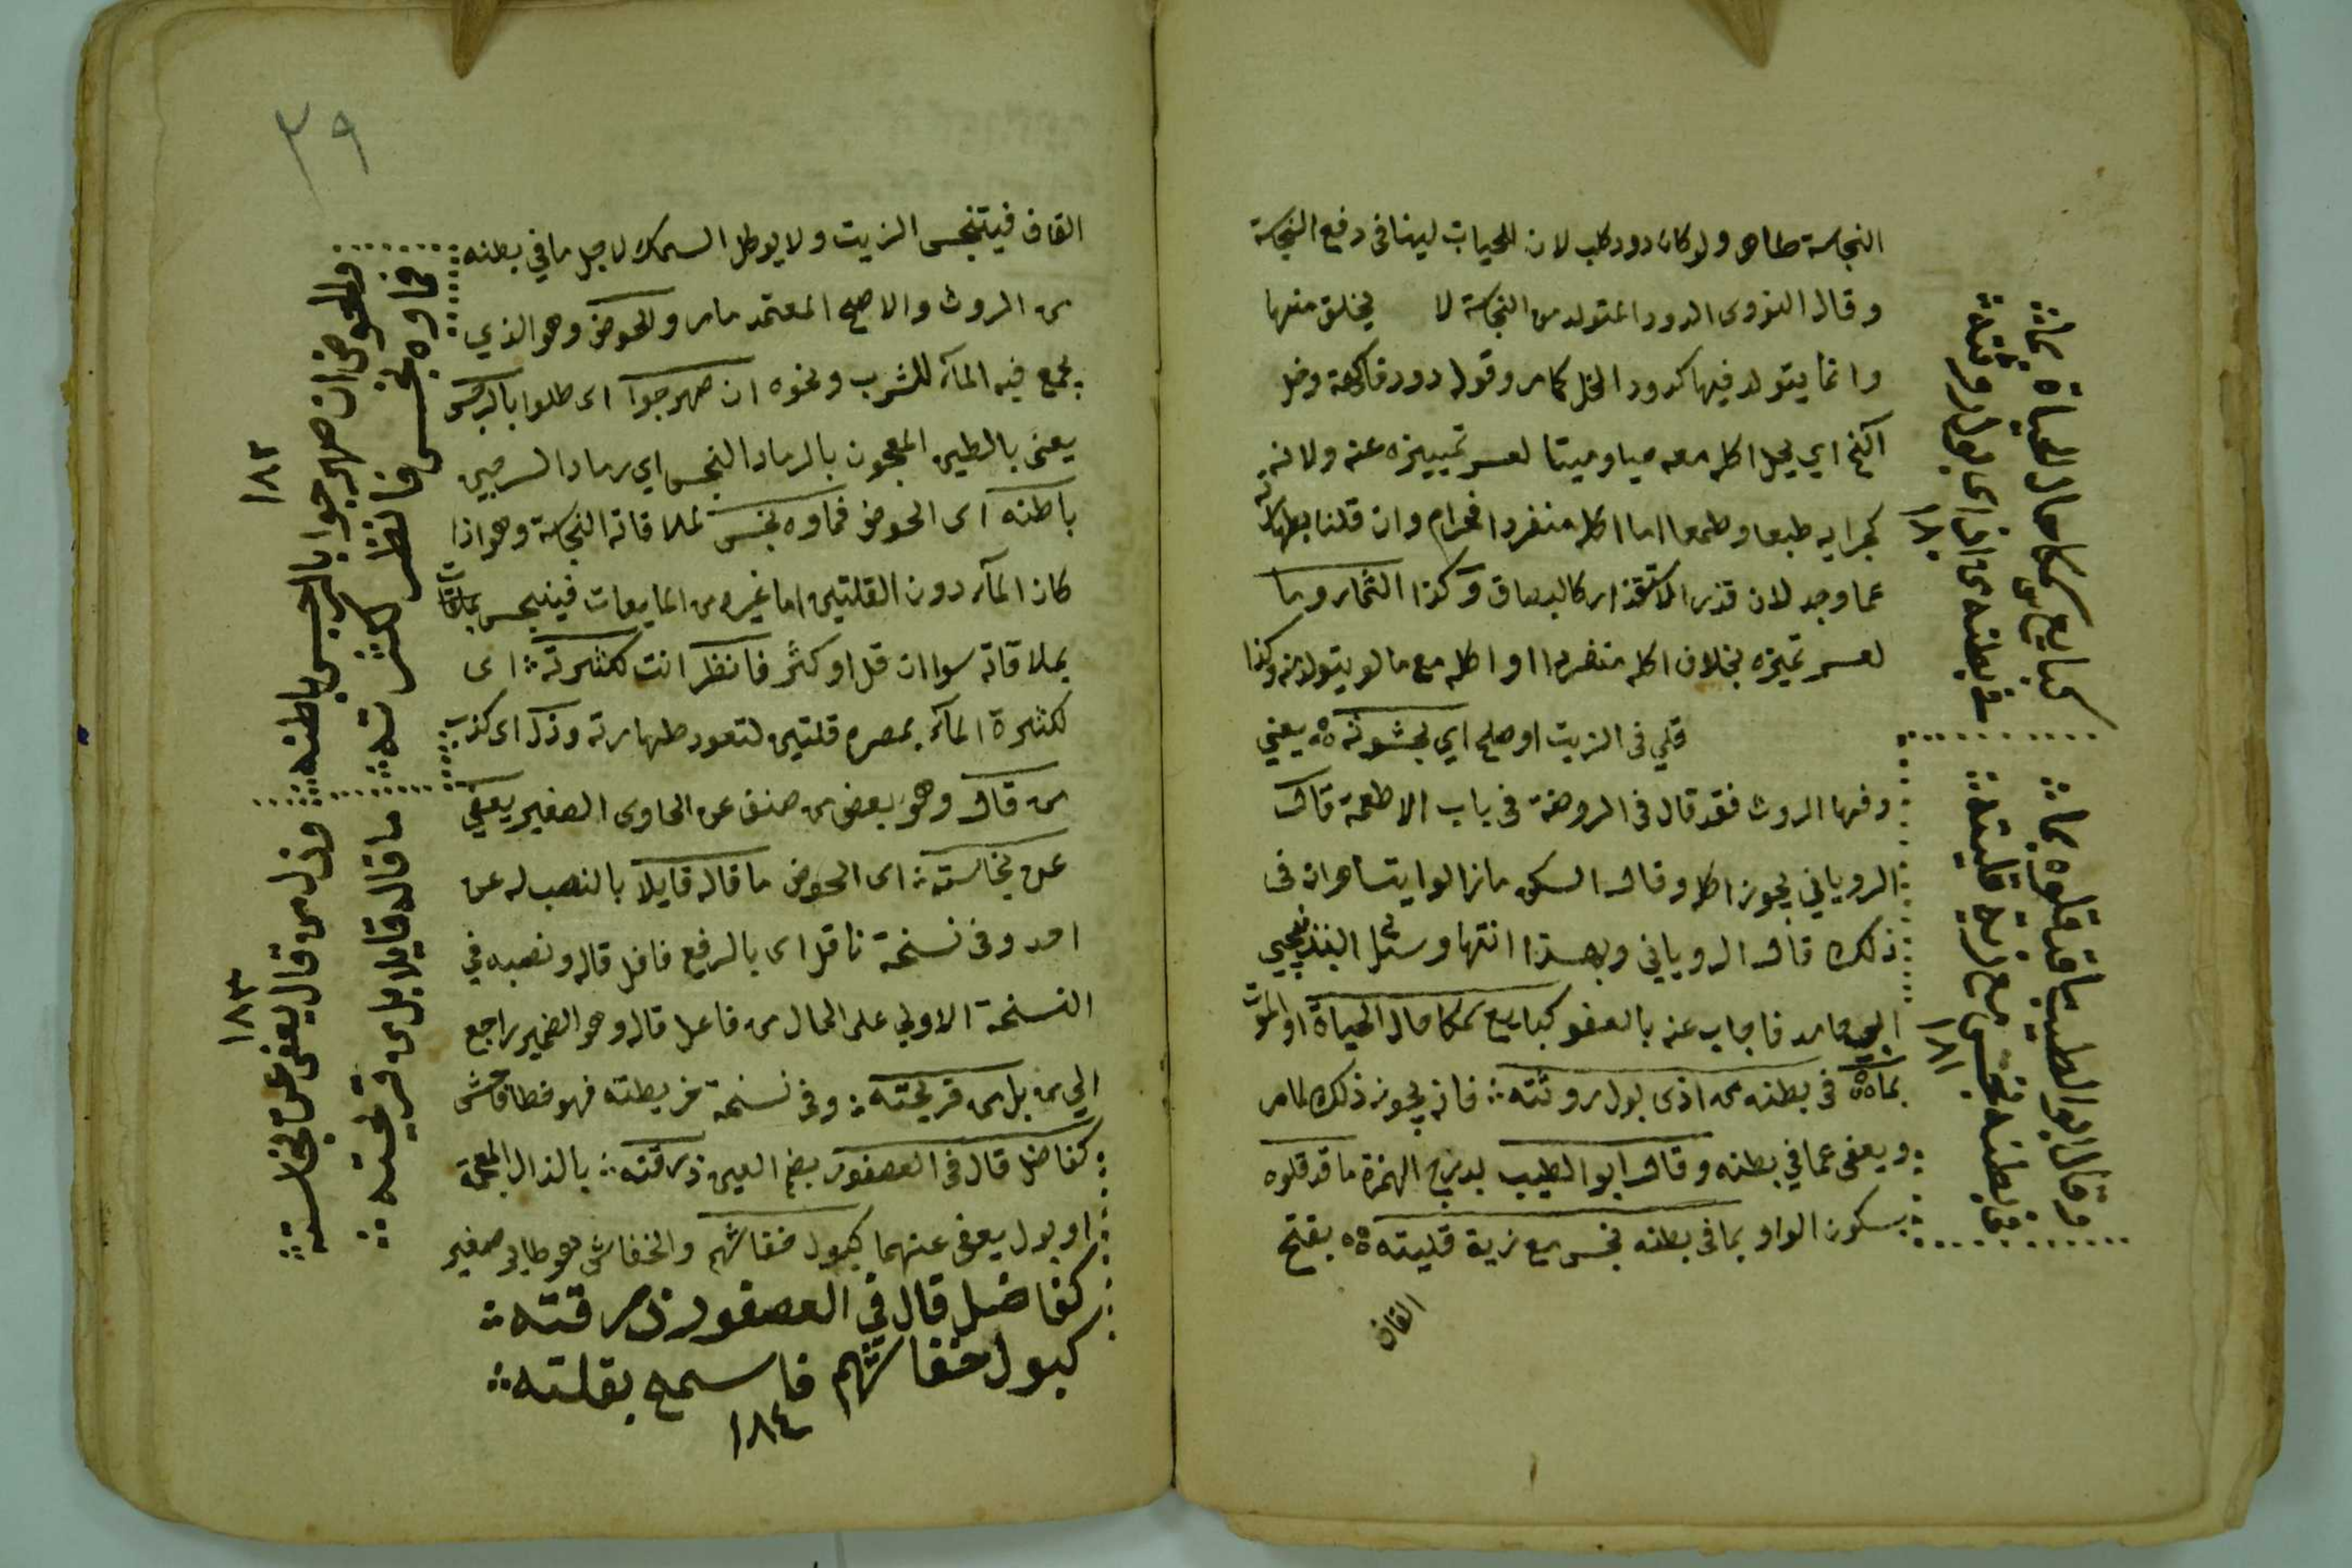 النجاسة طاهر ولو كان دود كلب لان للحيات ليناف في دفع النجاسة
وقال النووى الدود المتولد من النجاسة لا يخلق منها
وانما يتولد فيها كدود الخل كما مر وقوله دود فاكهة وخل
اي يحل اكله معه حيا وميتا لعسر تمييزه عنه ولانه
كجزايه طبعا وطعما اما اكله منفردا فحرام وان قلنا بطهارته
لان قذر كالبصاق وكذا الثمار وما
لعسر تميزه بخلاف اكله منفردا او اكله مع ما لو يتولد منه وكذا
قلي في الزيت او صلح اي بحشوته يعني
وفيها الروث فقد قال في الروضة في باب الاطعمة قال
الروياني يجوز اكله وقال السكى مازالوا يتساهلون في
ذلك قال الروياني وبهذا انتها وسئل البندنيجي
ابي حامد فاجاب عنه بالعفو كبايع سمكا حال الحياة او الموت
بما في بطنه من اذى بول روثته فانه يجوز ذلك لما مر
ويعفى عما في بطنه وقال ابوا الطيب بدرج الهمزة ما قد قلوه
بسكون الواو بما في بطنه نجس مع زيت قليته بفتح
القاف
كبايع سمكا حال الحياة بما
في بطنه من اذى بول روثته
١٨٠
وقال ابو الطيب ما قد قلوه بما
في بطنه نجس مع زيت قليته
١٨١
٣٩
القاف فيتنجس الزيت ولا يوكل السمك لاجل ما في بطنه
من الروث والاصح المعتمد ما مر والحوض وهو الذي
يجمع فيه المآء للشرب ونحوه ان صهرجوا اى طلوا بالرجس
يعنى بالطين المعجون بالرماد النجس اي رماد السرجين
باطنه اى الحوض فماوه نجس لملاقاته النجاسة وهو اذا
كان المآء دون القلتين اما غيره من المايعات فينجس
بملاقاته سواان قل او كثر فانظر انت لكثرته اى
لكثرة المآء بمصره قلتين لتعود طهارته وذل اى كذب
من قال وهو بعض من صنف عن الحاوى الصغير يعفى
عن نجاسته اى الحوض ما قاله قايلا بالنصب له عن
احد وفى نسخة ناقل اى بالرفع فاعل قاله ونصبه في
النسخة الاولي على الحال من فاعل قاله وهو الضمير راجع
الي من بل من قريحته وفى نسخة من بطنه فهو خطا فاحش
كفاضل قال في العصفور بضم العين ذرقته بالذال المعجمة
او بول يعفى عنهما كبول خفاشهم والخفاش هو طاير صغير
كفاضل قال في العصفور ذرقته
كبول خفاشهم فاسمح بقلته
١٨٤
والحوض ان صهرجوا بالرجس باطنه
فماوه نجس فانظر لكثرته
١٨٢
وذل من قال يعفى عن نجاسته
ما قاله قايلا بل من قريحته
١٨٣